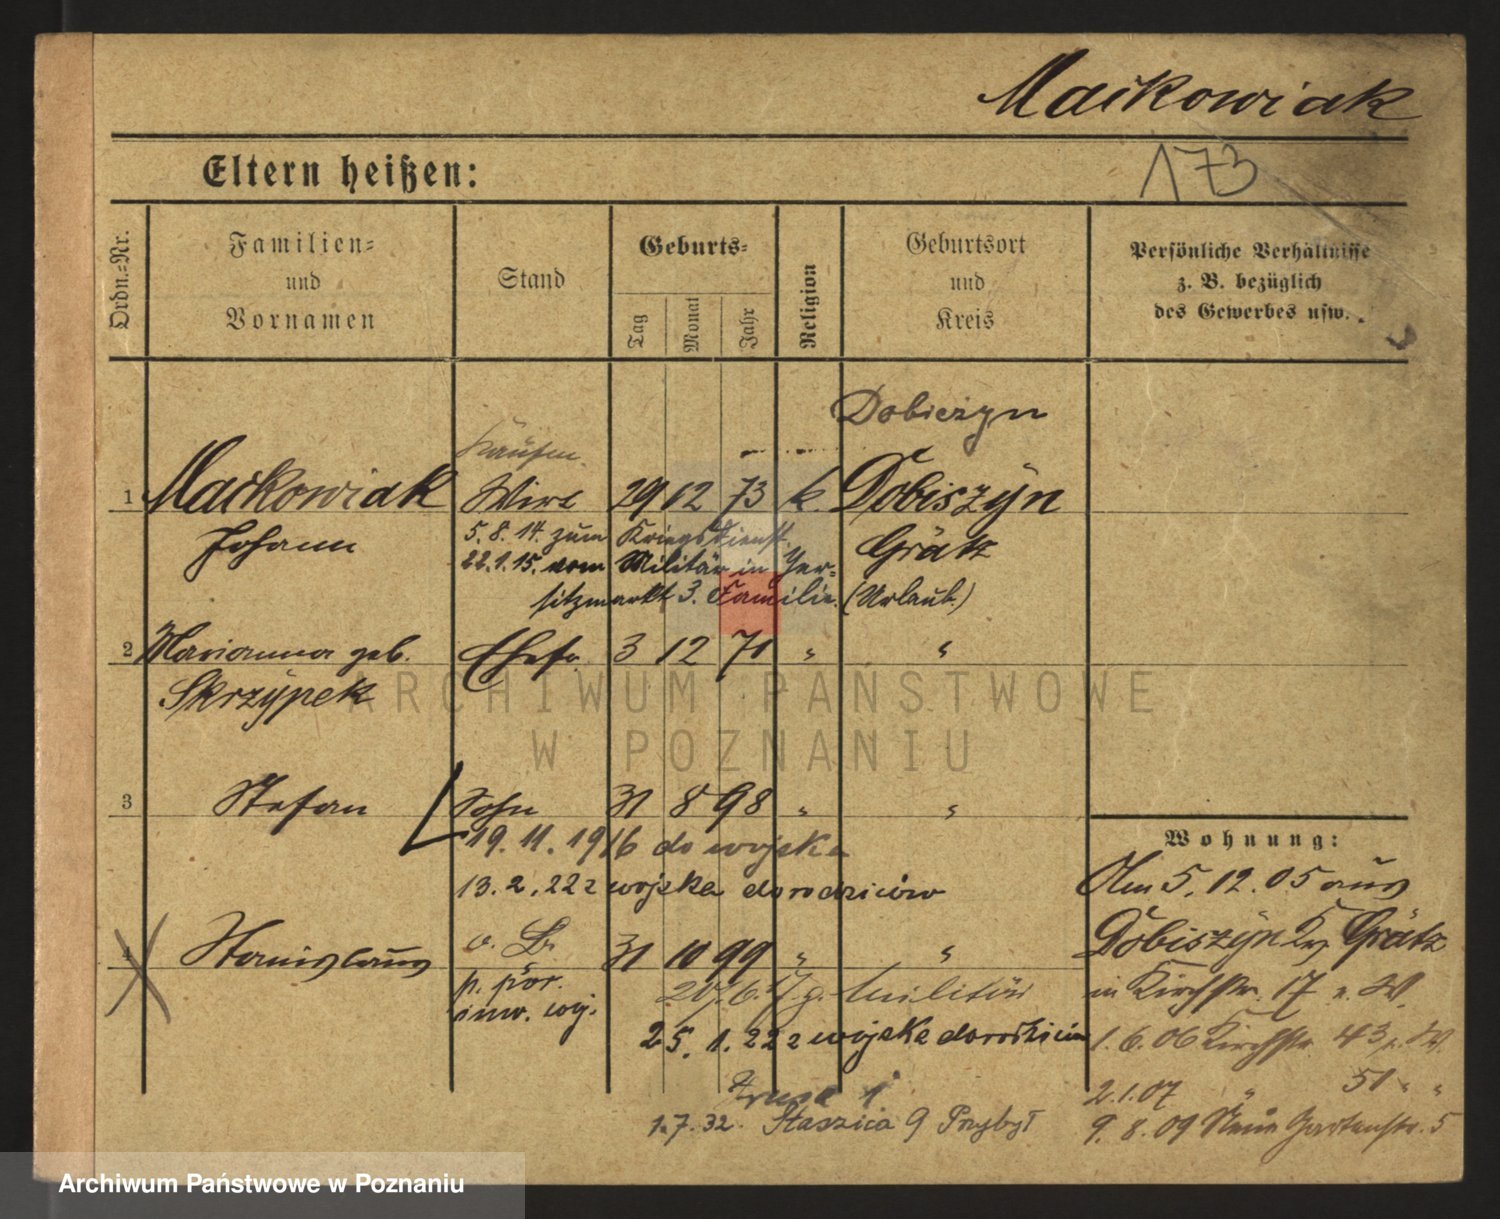 Maćkowiak
173
Eltern heißen:
Ordn.-Nr.
Familien-
und
Vornamen
Stand
Geburts-
Tag
Monat
Jahr
Religion
Geburtsort
und
Kreis
Persönliche Verhältnisse
z. B. bezüglich
des Gewerbes usw.
Dobieżyn
1 Maćkowiak Wirt 29 12 73 k. Dobiszyn
Johann 5. 8. 14. zum Kriegsdienst Grätz
22. 1. 15. vom Militär in Jer-
sitzmarkt 3. Familie. (Urlaub.)
2 Marianna geb. Ehefr. 3 12 71 " "
Skrzypek
ARCHIWUM PAŃSTWOWE
W POZNANIU
3 Stefan Sohn 31 8 98 " "
19. 11. 1916 do wojska
13. 2. 22 z wojska do rodziców
4 Stanislaus 31 10 99 " "
p. por.
inw. woj.
Militär
25. 1. 22 z wojska do rodziców
1. 7. 32. Staszica 9 Przybył
Wohnung:
Am 5. 12. 05 aus
Dobiszyn Kr. Grätz
in Kirchstr. 17 v. W.
1. 6. 06 Kirchstr. 43 W.
2. 1. 07 " 51 " "
9. 8. 09 Neue Gartenstr. 5
Archiwum Państwowe w Poznaniu